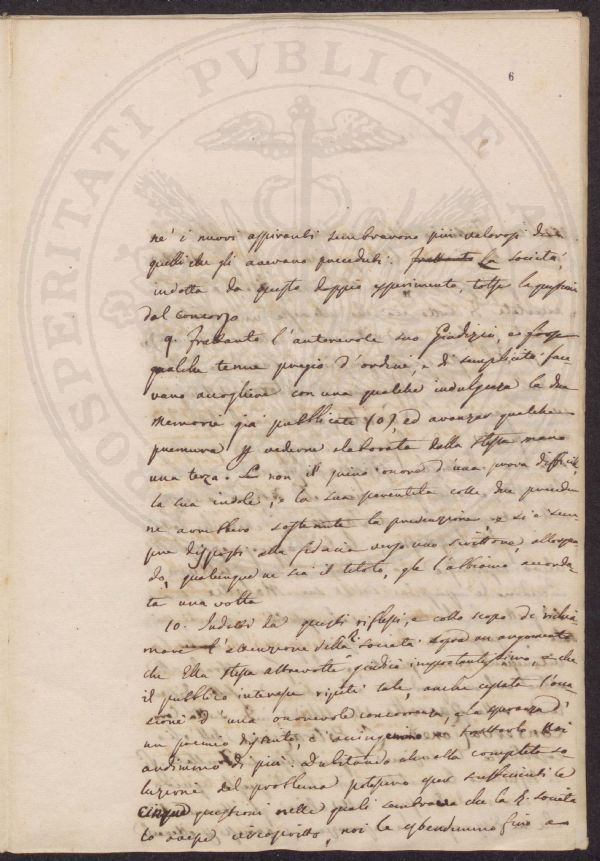 PROSPERITATI PVBLICAE
6
nè i nuovi aspiranti sembravano più valorosi di
quelli che gli avevano preceduti. frattanto La Società,
indotta da questo doppio esperimento, tolse la questione
dal concorso
9. Frattanto l'autorevole suo Giudizio, e forse
qualche tenue pregio d'ordine, e di semplicità fac-
evano accogliere con una qualche indulgenza le due
Memorie già pubblicate (0), ed avanzar qualche
premura di vederne elaborata dalla stessa mano
una terza. Se non il primo onore d'una prova difficile,
la sua indole, e la sua parentela colle due
ne avrebbero sostenuta la prevenzione, e si è sem-
pre disposti alla fiducia verso uno scrittore, allorquan-
do, qualunque ne sia il titolo, gli l'abbiamo accorda-
ta una volta
10. Indotti da questi riflessi, e collo scopo di richia-
mare l'attenzione della R. Società sopra un argomento
che Ella stessa altrevolte giudicò importantissimo, e che
il pubblico interesse reputi tale, anche cessate l'occa-
sione d'una onorevole concorrenza, e la speranza d'
un premio distinto, ci accingemmo a trattarlo. Noi
andimmo di più: dubitando che alla completa so-
luzione del problema potessero esser sufficienti le
Cinque questioni nelle quali sembrava che la R. Società
lo avesse circoscritto, noi le estendemmo fino a